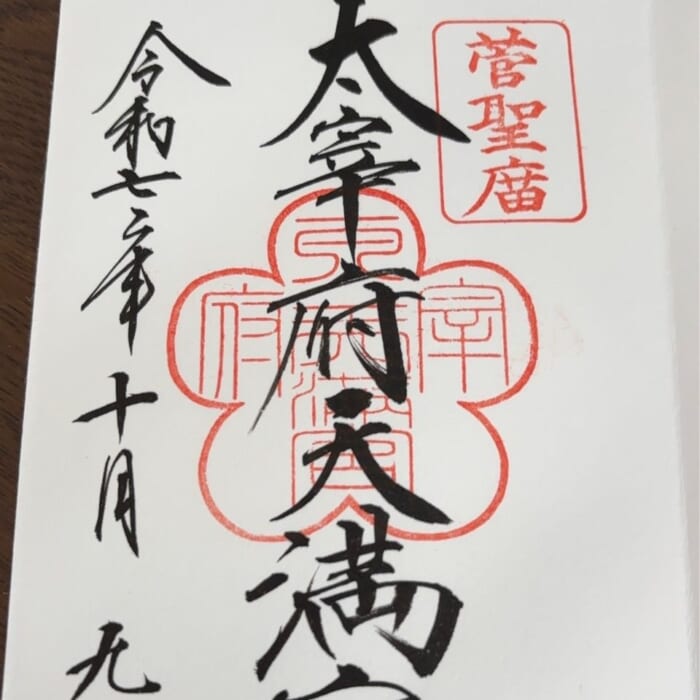 菅聖庿
太宰府天満宮
令和七年十月九